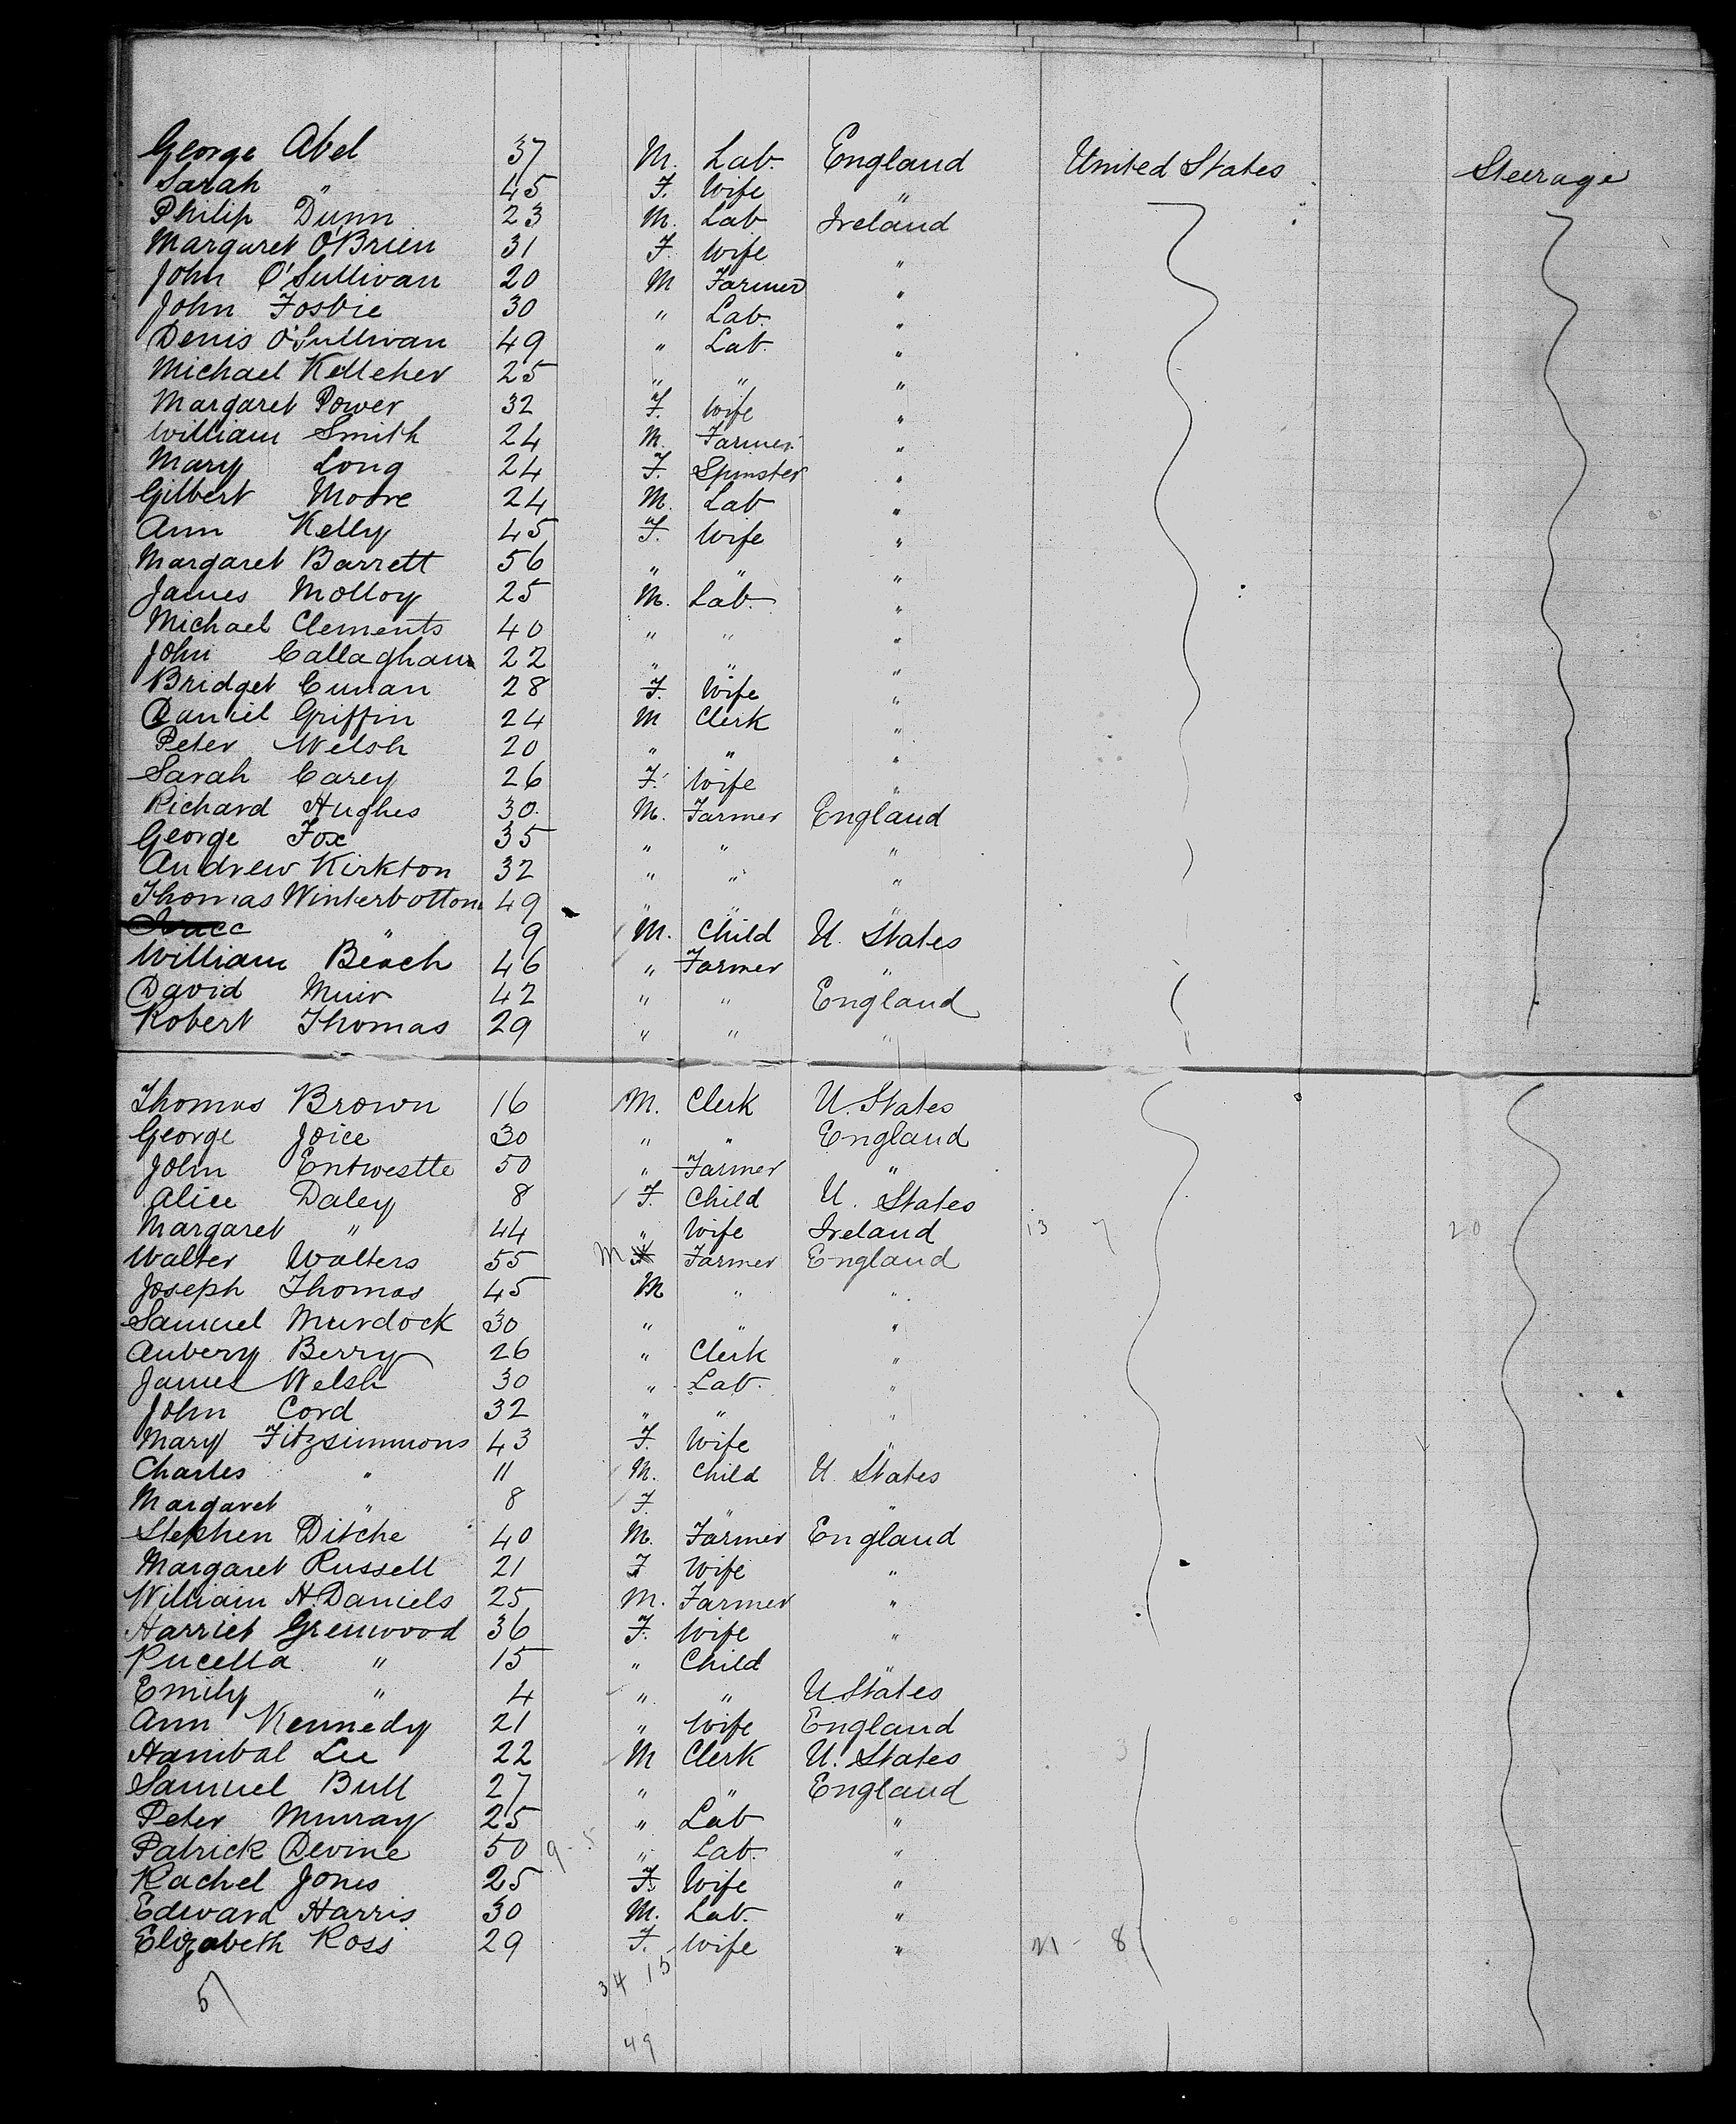 George Abel 37 M. Lab. England United States Steerage
Sarah " 45 F. Wife "
Philip Dunn 23 M. Lab Ireland
Margaret O'Brien 31 F. Wife "
John O'Sullivan 20 M Farmer "
John Fosbie 30 " Lab. "
Denis O'Sullivan 49 " Lab. "
Michael Kelleher 25 " " "
Margaret Power 32 F. Wife "
William Smith 24 M. Farmer "
Mary Long 24 F. Spinster "
Gilbert Moore 24 M. Lab "
Ann Kelly 45 F. Wife "
Margaret Barrett 56 " " "
James Molloy 25 M. Lab. "
Michael Clements 40 " " "
John Callaghan 22 " " "
Bridget Cunan 28 F. Wife "
Daniel Griffin 24 M Clerk "
Peter Welsh 20 " " "
Sarah Carey 26 F. Wife "
Richard Hughes 30. M. Farmer England
George Fox 35 " " "
Andrew Kirkton 32 " " "
Thomas Winterbottom 49 " " "
" 9 M. Child U. States
William Beach 46 " Farmer "
David Muir 42 " " England
Robert Thomas 29 " " "
Thomas Brown 16 M. Clerk U. States
George Joice 30 " " England
John Entwestle 50 " Farmer "
Alice Daley 8 F. Child U. States
Margaret " 44 " Wife Ireland 13 7 20
Walter Walters 55 M Farmer England
Joseph Thomas 45 M " "
Samuel Murdock 30 " " "
Aubery Berry 26 " Clerk "
James Welsh 30 " Lab. "
John Cord 32 " " "
Mary Fitzsimmons 43 F. Wife "
Charles " 11 M. Child U. States
Margaret " 8 F " "
Stephen Ditche 40 M. Farmer England
Margaret Russell 21 F Wife "
William H. Daniels 25 M. Farmer "
Harriet Grenwood 36 F. Wife "
Pucella " 15 " Child "
Emily " 4 " " U States
Ann Kennedy 21 " Wife England
Hanibal Lee 22 M Clerk U. States 3
Samuel Bull 27 " " England
Peter Murray 25 " Lab "
Patrick Devine 50 9-5 " Lab. "
Rachel Jones 25 F. Wife "
Edward Harris 30 M. Lab. "
Elizabeth Ross 29 F. Wife " 21 - 8
34 15
57
49